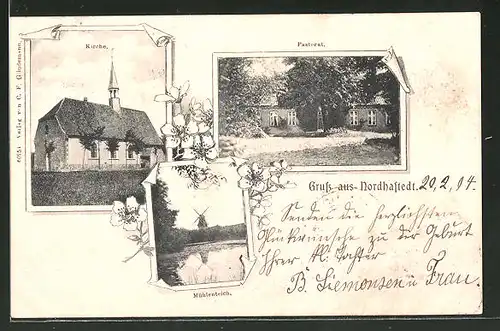 Kirche.
Pastorat.
60954 Verlag von C. F. Glüsemann.
Gruß aus Nordhastedt.
20.2.04.
Senden die herzlichsten
Glückwünsche zu der Geburt
Ihrer kl. Tochter
B. Siemonsen u Frau.
Mühlenteich.